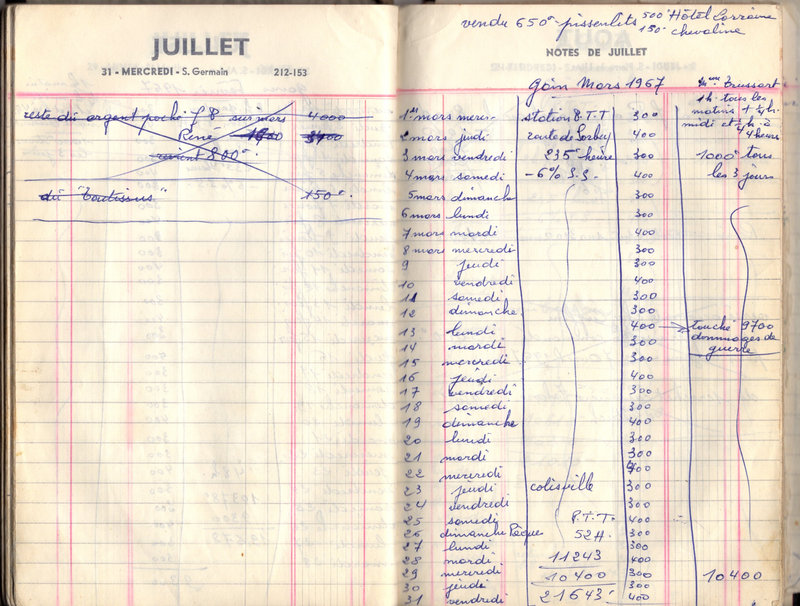 JUILLET
31 - MERCREDI - S. Germain 212-153
reste dû argent poche f 8 sur mars 4000
René
revient 800
dû "boutissus" 150
vendu 650 pissenlits 500 Hôtel Lorraine
150 chevaline
NOTES DE JUILLET
gain Mars 1967
1er mars mer. station P.T.T 300
2 mars jeudi route de Sorbey 400
3 mars vendredi 235 heure 300
4 mars samedi -6% S.S. 400
5 mars dimanche 300
6 mars lundi 300
7 mars mardi 400
8 mars mercredi 300
9 jeudi 300
10 vendredi 400
11 samedi 300
12 dimanche 300
13 lundi 400
14 mardi 300
15 mercredi 300
16 jeudi 400
17 vendredi 300
18 samedi 300
19 dimanche 400
20 lundi 300
21 mardi 300
22 mercredi 400
23 jeudi colisville 300
24 vendredi 300
25 samedi P.T.T. 400
26 dimanche Pâque 52H. 300
27 lundi 300
28 mardi 11243 400
29 mercredi 10400 300
30 jeudi 300
31 vendredi 21643 400
1h. tous les
matins + 1/2h.
midi et 1/2h à
4 heures
1000 tous
les 3 jours
touché 9700
dommages de
guerre
10400